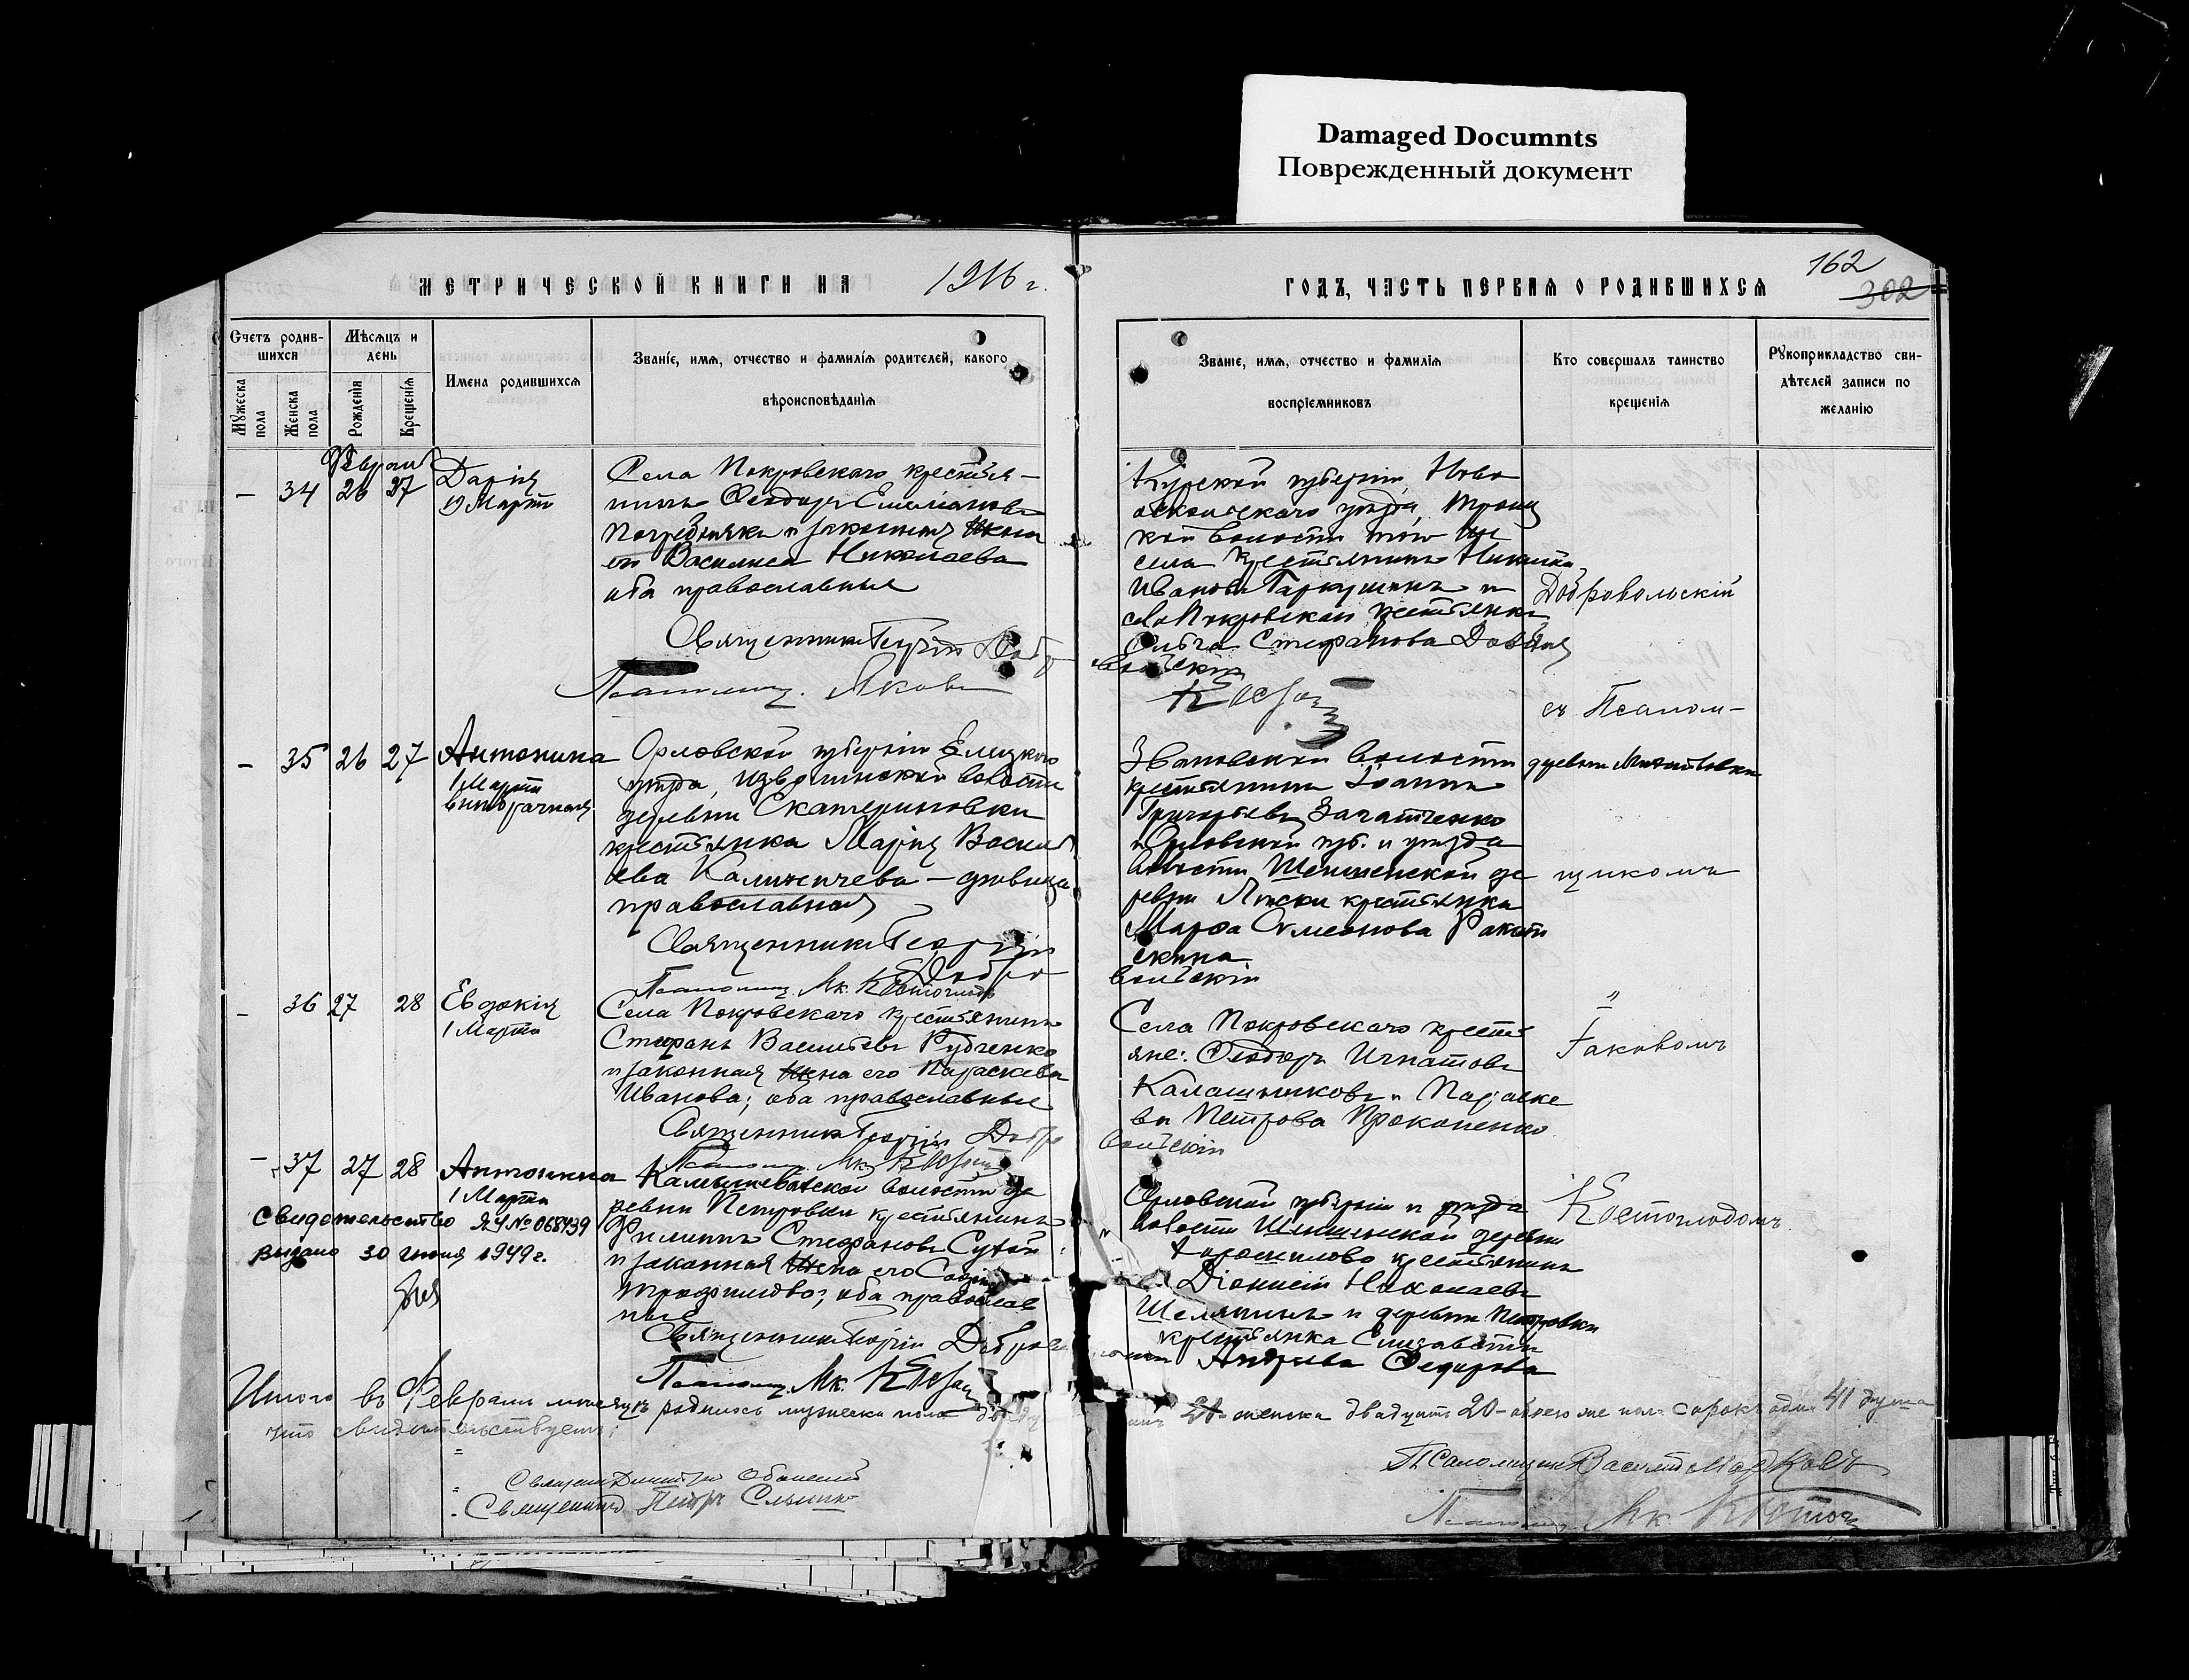 Damaged Documnts
Поврежденный документ
МЕТРИЧЕСКОЙ КНИГИ НА 1916 г.
ГОДЪ, ЧАСТЬ ПЕРВАЯ О РОДИВШИХСЯ
162
302
Счетъ родив-
шихся
Мужеска пола
Женска пола
Мѣсяцъ и
день
Рожденія
Крещенія
Имена родившихся
Званіе, имя, отчество и фамилія родителей, какого
вѣроисповѣданія
Званіе, имя, отчество и фамилія
воспріемниковъ
Кто совершалъ таинство
крещенія
Рукоприкладство сви-
дѣтелей записи по
желанію
Февраль
— 34 26 27
Дарія
19 Марта
Села Покровскаго крестья-
нинъ Феодоръ Емиліановъ
Погребнякъ и законная жена
его Василиса Николаева
оба православные
Священникъ Георгій Добро
Псаломщ. Іаковъ
Курской губерніи, Ново
оскольскаго уѣзда, Троиц
кой волости той же
села крестьянинъ Никита
Ивановъ и
села Покровскаго крестьянка
Ольга Стефанова
вольскій
Добровольскій
съ Псалом-
— 35 26 27
Антонина
1 Марта
внебрачная
Орловской губерніи Елецкаго
уѣзда, волости
деревни Екатериновки
крестьянка Марія Василь
ева Калиничева — дѣвица
православная
Священникъ Георгій
Добро
Псаломщ. Як. Костоглодъ
Звановской волости деревни Михайловки
крестьянинъ Іоаннъ
Григорьевъ
и Орловской губ. и уѣзда
волости Шеншенской де
ревни крестьянка
Марфа Симеонова Ракит
скина
вольскій
щикомъ
— 36 27 28
Евдокія
1 Марта
Села Покровскаго крестьянинъ
Стефанъ Васильевъ Рудченко
и законная жена его Параскева
Иванова; оба православные
Священникъ Георгій Добро
Села Покровскаго кресть
яне: Феодоръ Игнатовъ
Калашниковъ и Параске
ва Петрова Прокопенко
вольскій
"
Іаковомъ
— 37 27 28
Антонина
1 Марта
Свидетельство ЯЧ № 068439
выдано 30 июня 1949 г.
Камышеватской волости де
ревни Петровки крестьянинъ
Филиппъ Стефановъ
и законная жена его Софія
Трофимова; оба православ
ные
Священникъ Георгій Доброво
Псаломщ. Як.
Орловской губерніи и уѣзда
волости Шеншинской деревни
крестьянинъ
Діонисій Николаевъ
и деревни Петровки
крестьянка Елизавета
Андреева Федорова
Костоглодомъ
Итого въ Февралѣ мѣсяцѣ родилось мужеска пола
женска двадцать 20 — обоего же пола сорокъ одна 41 душа
что свидѣтельствуемъ:
Священ. Димитрій
Священникъ Петръ
Псаломщикъ Василій Марковъ
Псаломщ. Як.